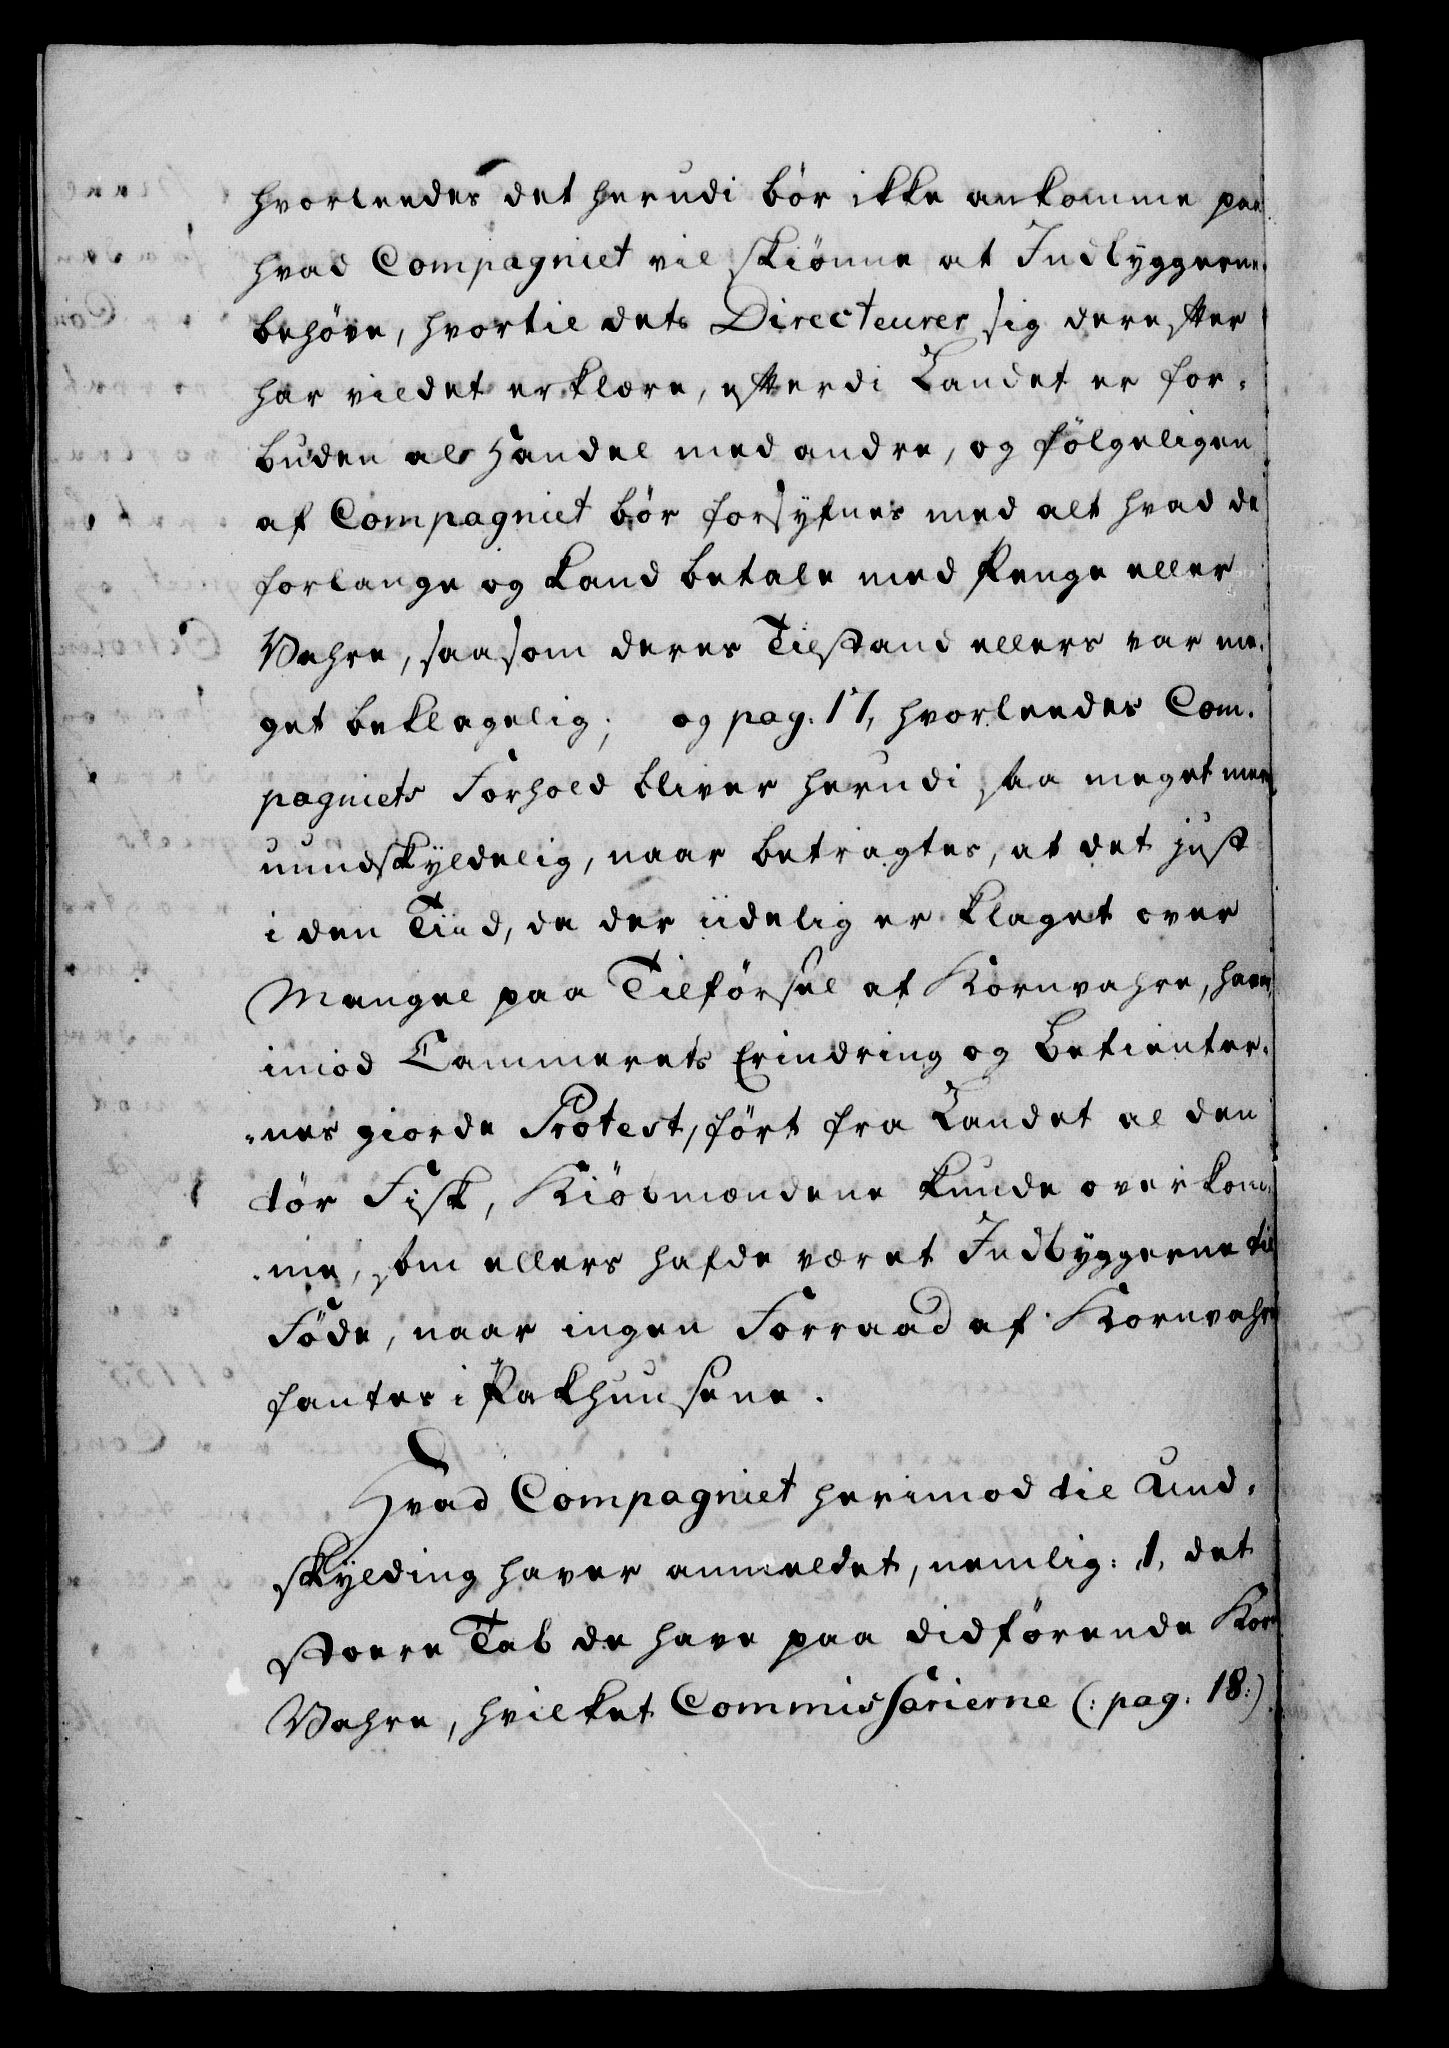 hvorleedes det herudi bör ikke ankomme paa
hvad Compagniet vil skiönne at Indbyggerne
behöve, hvortil dets Directeurer sig derefter
har vildet erklære, efterdi Landet er for-
buden al Handel med andre, og fölgeligen
af Compagniet bör forsyfnes med alt hvad de
forlange og kand betale med Penge eller
Vahre, saasom deres Tilstand ellers var me-
get beklagelig; og pag. 17, hvorleedes Com-
pagniets Forhold bliver herudi saa meget meer
uundskÿldelig, naar betragtes, at det just
i den Tiid, da der iidelig er klaget over
Mangel paa Tilförsel af Kornvahre, haver,
imod Cammerets Erindring og Betienter-
nes giorde Protest, fört fra Landet al den
tör Fisk, Kiöbmændene kunde overkom-
me, som ellers hafde været Indbyggerne til
Föde, naar ingen Forraad af Kornvahre
fantes i Pakhuusene.
Hvad Compagniet herimod til Und-
skÿlding haver anmeldet, nemlig: 1, det
stoere Tab de have paa didförende Korn
Vahre, hvilket Commissarierne (: pag. 18:)